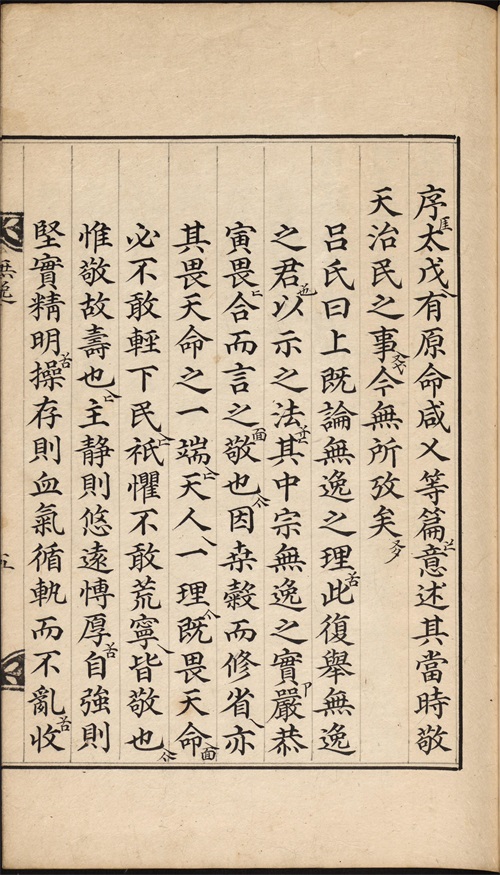 序太戊有原命咸乂等篇意述其當時敬
天治民之事今無所攷矣
呂氏曰上既論無逸之理此復舉無逸
之君以示之法其中宗無逸之實嚴恭
寅畏合而言之敬也因桒糓而修省亦
其畏天命之一端天人一理既畏天命
必不敢輕下民祗懼不敢荒寧皆敬也
惟敬故壽也主静則悠遠愽厚自強則
堅實精明操存則血氣循軌而不亂收
無逸
五